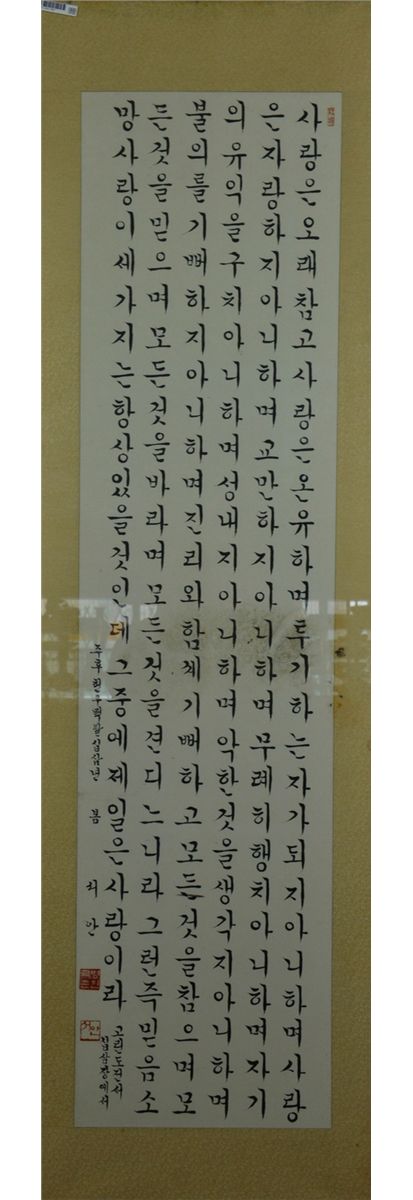 사랑은오래참고사랑은온유하며투기하는자가되지아니하며사랑
은자랑하지아니하며교만하지아니하며무례히행치아니하며자기
의유익을구치아니하며성내지아니하며악한것을생각지아니하며
불의를기뻐하지아니하며진리와함께기뻐하고모든것을참으며모
든것을믿으며모든것을바라며모든것을견디느니라그런즉믿음소
망사랑이세가지는항상있을것인데그중에제일은사랑이라
고린도전서
십삼장에서
주후 천구백팔십삼년 봄